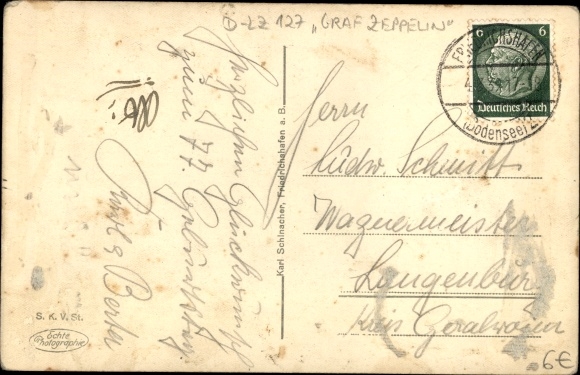 D-LZ 127 „GRAF ZEPPELIN"
Herzlichen Glückwunsch
zum 77. Geburtstag.
Berta
S. K. V. St.
Echte
Photographie
Karl Schlnacher, Friedrichshafen a. B.
6 6
Deutsches Reich
FRIEDRICHSHAFEN
(Bodensee)
Herrn
Ludw. Schmitt
Wagnermeister
Langenburg
Kreis Gerabronn
6€